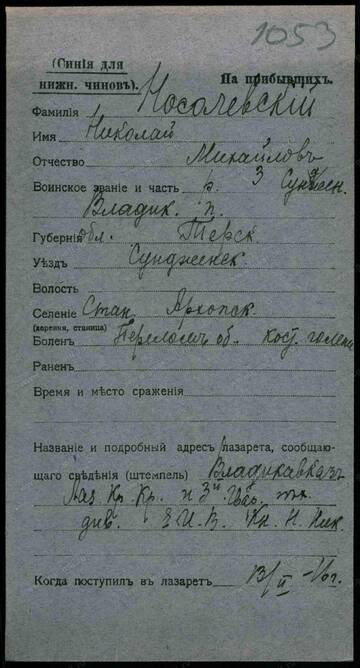 1053
(Синія для
нижн. чиновъ). На прибывшихъ.
Фамилія Носачевскій
Имя Николай
Отчество Михайловъ
Воинское званіе и часть р. 3 Сунжен.
Владик. п.
Губернія обл. Терск.
Уѣздъ Сунженск
Волость
Селеніе Стан.
(деревня, станица)
Боленъ Переломъ об. кост. голени
Раненъ
Время и мѣсто сраженія
Названіе и подробный адресъ лазарета, сообщаю-
щаго свѣдѣнія (штемпель) Владикавказъ
Лаз. Кр. Кр. и 3й
див. Е. И. В. Кн. Н. Ник.
Когда поступилъ въ лазаретъ 13/II -16 г.